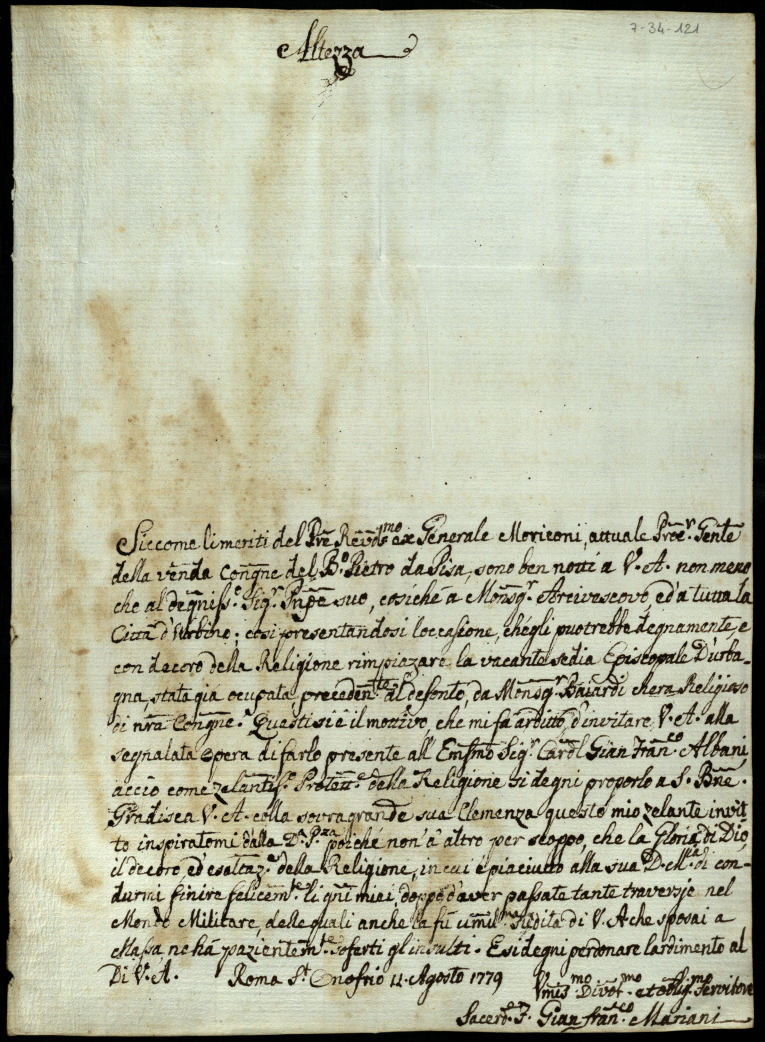 7-34-121
Altezza
Siccome li meriti del Prē Revd̄mo ex Generale Moriconi, attuale Proēr Gente
della venda Congn̄e del Bo Pietro da Pisa, sono ben notti a V. A. non meno
che al degnisso Sigr Pnp̄e suo, cosiché a Monsgr Arcivescovo, ed'a tutta la
Città d'Urbino; cosi presentandosi l'occasione, ch'egli puotrebbe degnamente, e
con decoro della Religione rimpiazare la vacante sedia Episcopale d'urba-
gna, stata gia ocupata, precedente al defonto, da Monsgr Baiardi ch'era Religioso
di nrā Congne. Questi si è il mottivo, che mi fa arditto d'invitare V. A. alla
segnalata opera di farlo presente all' Em̄mo Sigr Cardl Gian Franco Albani,
acciò come zelantiso Protetre della Religione si degni proporlo a S. Bn̄e.
Gradisca V. A. colla sovragrande sua Clemenza questo mio zelante invit-
to inspiratomi dalla Da Pza poiché non'à altro per scoppo, che la Gloria di Dio,
il decoro, ed'esaltaze della Religione, in cui è piaciutto alla sua D. Mtà di con-
durmi finire felicemte li gn̄i miei, doppo d'aver passate tante traversje nel
Mondo Militare, delle quali anche la fù umilma Suddita di V. A che sposai a
Massa ne há pazientemte soferti gl'insulti. E si degni perdonare l'ardimento al
Di V. A. Roma St Onofrio 14 Agosto 1779
Umismo Divotmo et obligmo Servitore
Sacerde F. Gian Franco Mariani